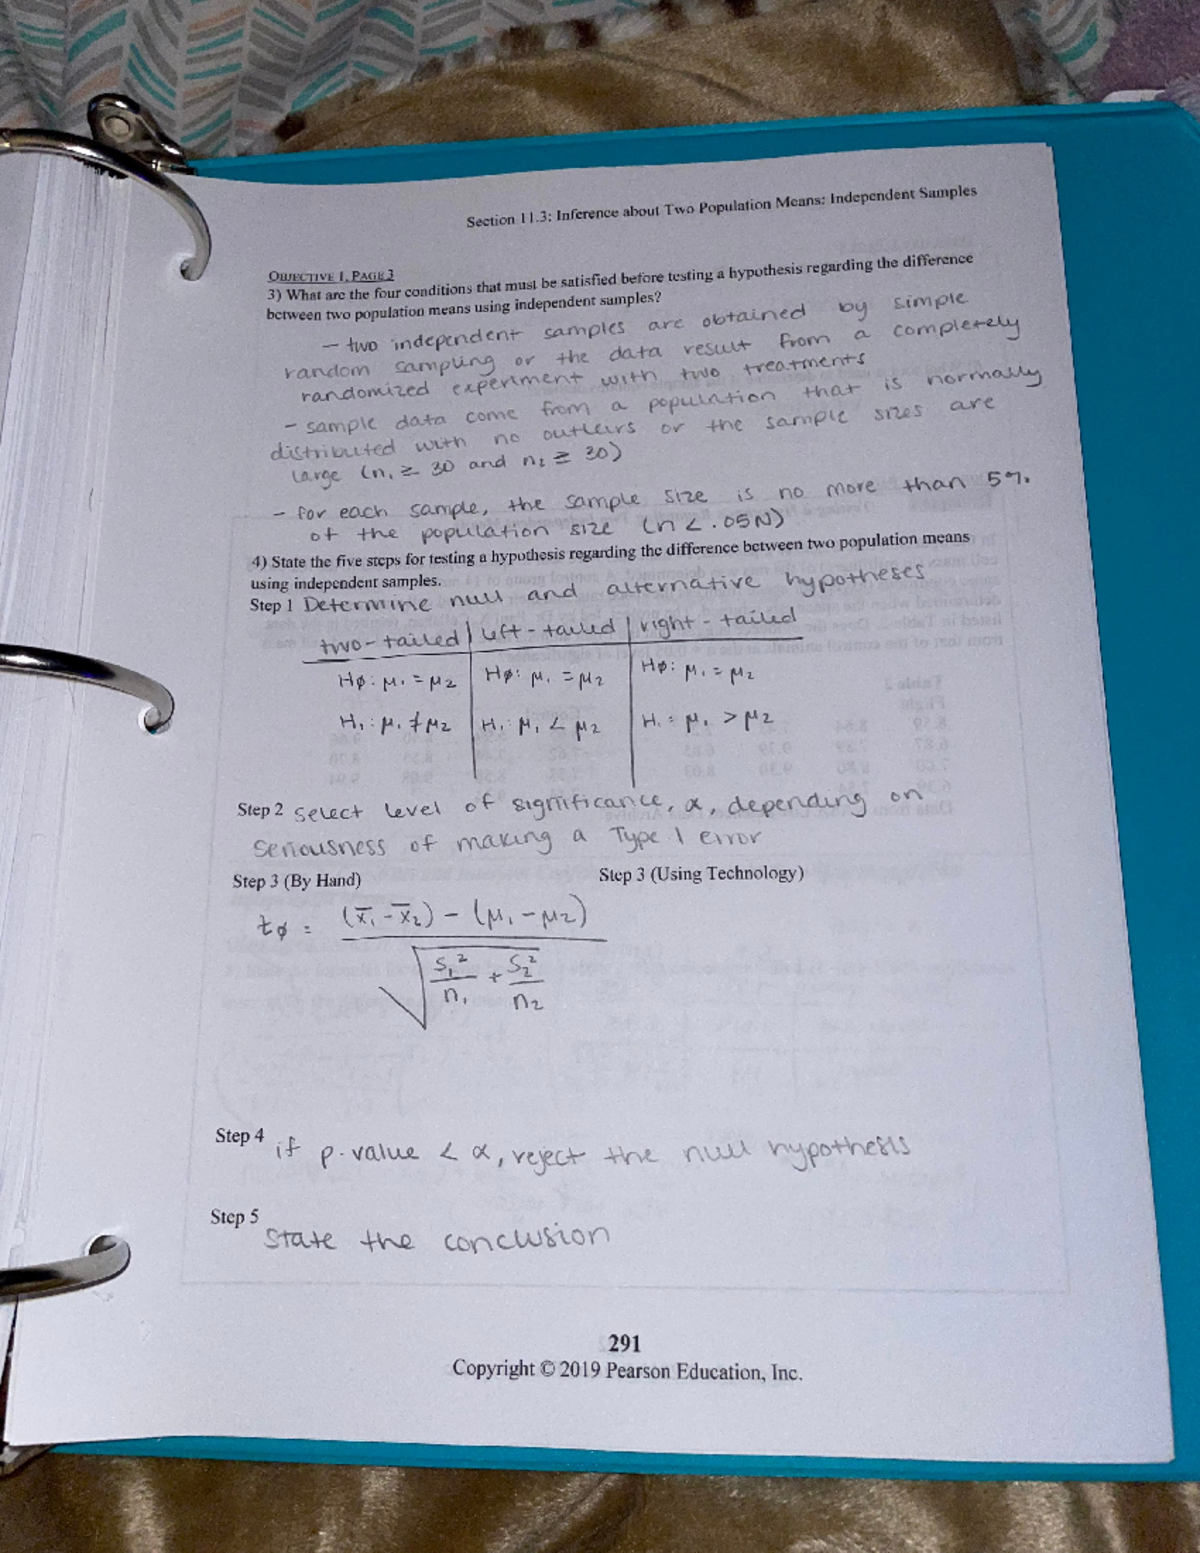 Section 11.3: Inference about Two Population Means: Independent Samples
OBJECTIVE 1, PAGE 3
3) What are the four conditions that must be satisfied before testing a hypothesis regarding the difference
between two population means using independent samples?
- two independent samples are obtained by simple
random sampling or the data result from a completely
randomized experiment with two treatments
- sample data come from a population that is normally
distributed with no outleirs or the sample sizes are
large (n₁ ≥ 30 and n₂ ≥ 30)
- for each sample, the sample size is no more than 5%
of the population size (n < .05N)
4) State the five steps for testing a hypothesis regarding the difference between two population means
using independent samples.
Step 1 Determine null and alternative hypotheses
two-tailed | left-tailed | right-tailed
HØ: μ₁ = μ₂ HØ: μ₁ = μ₂ HØ: μ₁ = μ₂
H₁: μ₁ ≠ μ₂ H₁: μ₁ < μ₂ H₁: μ₁ > μ₂
Step 2 select level of significance, α, depending on
seriousness of making a Type 1 error
Step 3 (By Hand) Step 3 (Using Technology)
tø = (x̄₁ - x̄₂) - (μ₁ - μ₂)
√ s₁²/n₁ + s₂²/n₂
Step 4 if p-value < α, reject the null hypothesis
Step 5 State the conclusion
291
Copyright © 2019 Pearson Education, Inc.